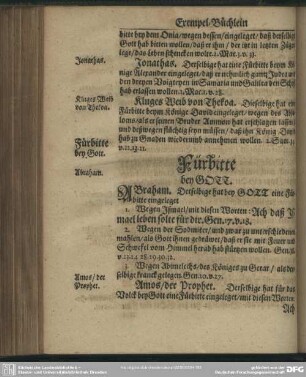 Exempel-Büchlein
bitte bey dem Onia/ wegen dessen/ eingeleget/ daß derselbige
Gott hab bitten wollen/ daß er ihm/ der itzt in letzten Zügen
lege/ das Leben schencken wolte. 2. Mac. 3. v. 31.
Jonathas.
Jonathas. Derselbige hat eine Fürbitte beym Kö-
nige Alexander eingeleget/ daß er
den dreyen Voigteyen in Samaria und Galilea den Schoß
hab erlassen wollen. 1. Mac. 11. v. 28.
Kluges Weib
von Thekoa.
Kluges Weib von Thekoa. Dieselbige hat eine
Fürbitte beym Könige David eingeleget/ wegen des Ab-
solons/ als er seinen Bruder Ammon hat erschlagen lassen/
und deßwegen flüchtig seyn müssen/ daß ihn König David
hab zu Gnaden wiederumb annehmen wollen. 2. Sam. 14.
v. 11. 13. 21.
Fürbitte
bey Gott.
Fürbitte
bey GOTT.
Abraham.
ABraham. Derselbige hat bey GOTT eine Für-
bitte eingeleget
1. Wegen Ismael/ mit diesen Worten: Ach daß Is-
mael leben solte für dir. Gen. 17. v. 18.
2. Wegen der Sodomiter/ und zwar zu unterschiedenen
mahlen/ als Gott ihnen gedräuet/ daß er sie mit Feuer und
Schwefel vom Himmel herab hab stürtzen wollen. Gen. 18.
v. 23. 24. 28. 29. 30. 31. 32.
3. Wegen Abimelechs/ des Königes zu Gerar/ als der-
selbige kranck gelegen Gen. 20. v. 17.
Amos/ der
Prophet.
Amos/ der Prophet. Derselbige hat für das
Volck bey Gott eine Fürbitte eingeleget/ mit diesen Worten:
Ach